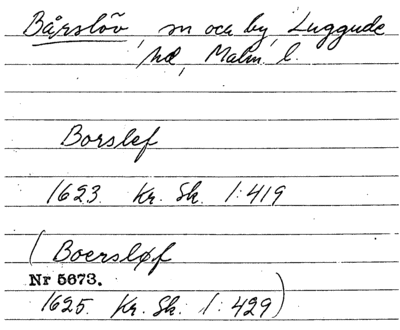 Bårslöv, sn och by, Luggude
hd, Malm. l.
Borslef
1623. Kr. Sk. 1:419
(Boersløf
Nr 5673.
1625. Kr. Sk. 1:429)